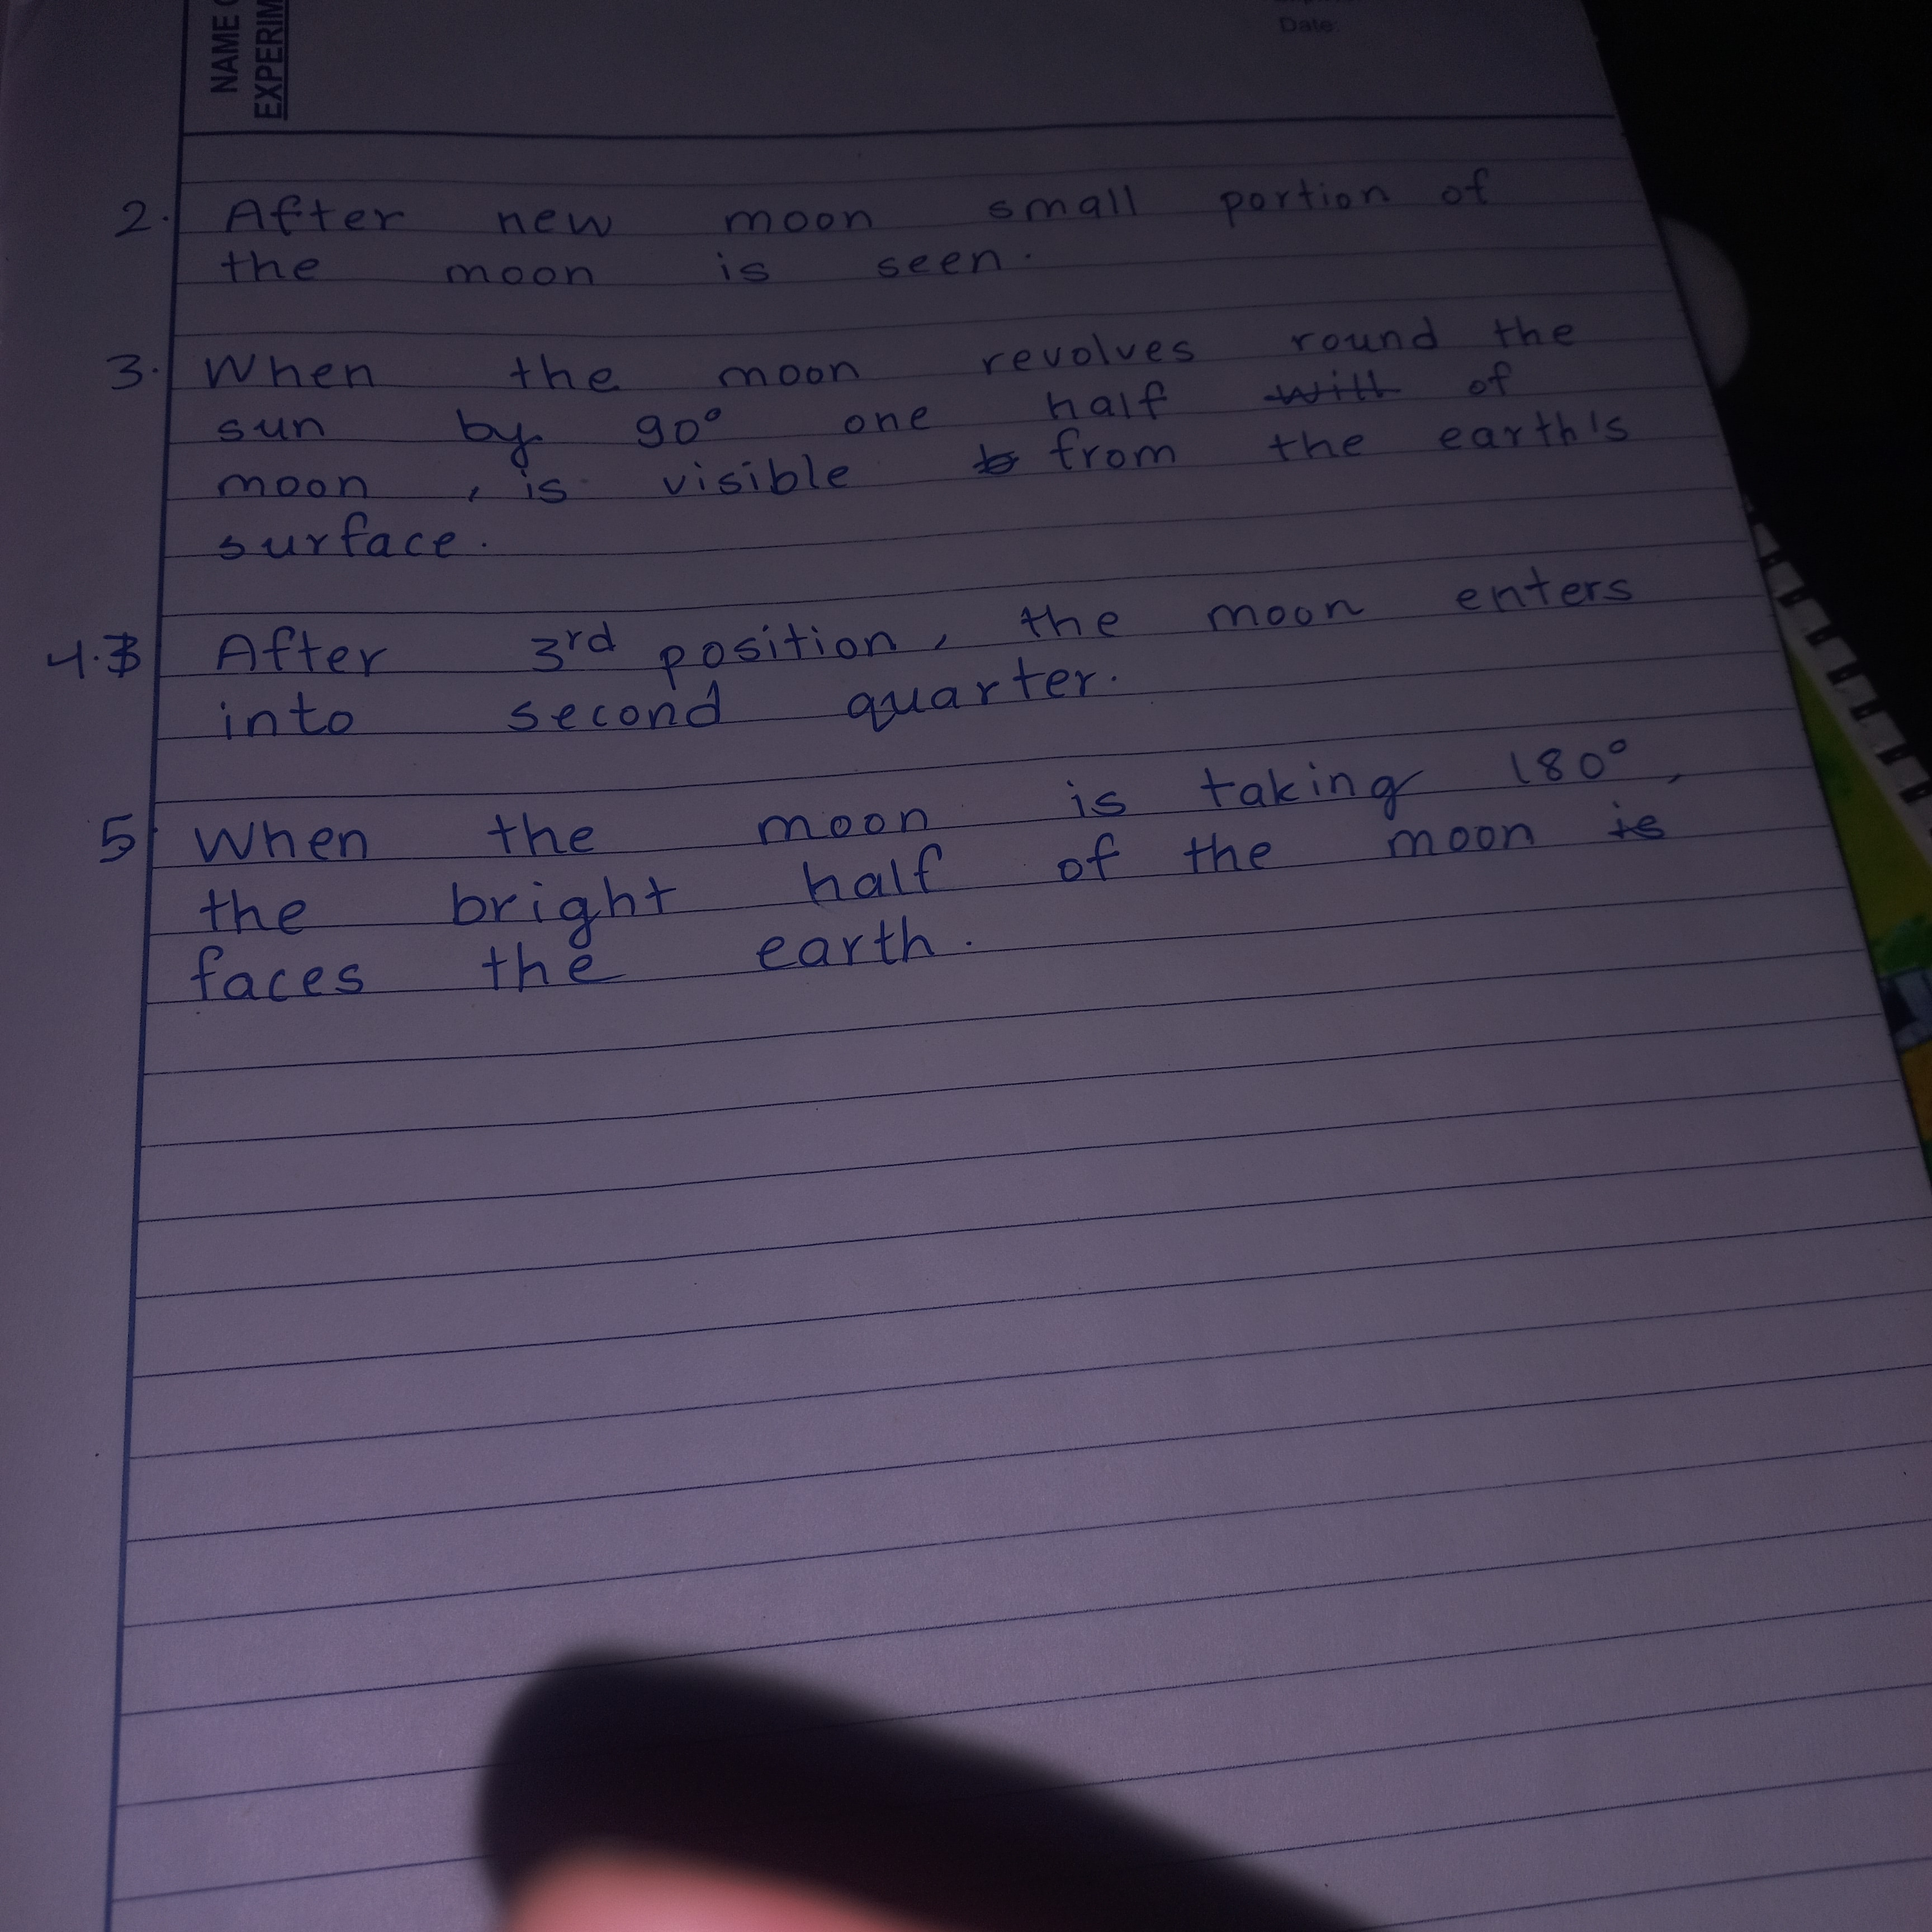 NAME
EXPERIM
Date
2. After new moon small portion of
the moon is seen.
3. When the moon revolves round the
sun by 90° one half will of
moon , is visible from the earth's
surface.
4. After 3rd position, the moon enters
into second quarter.
5 When the moon is taking 180°,
the bright half of the moon is
faces the earth.